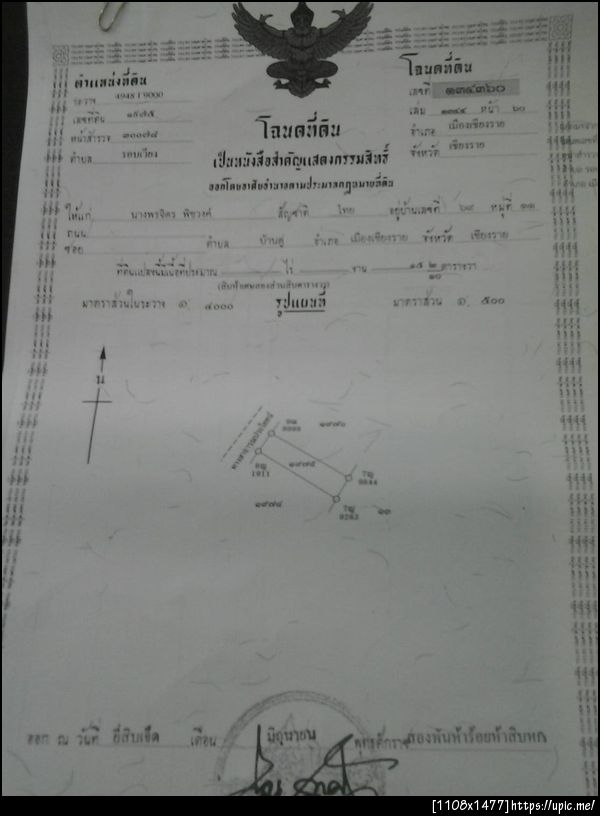 ตำแหน่งที่ดิน
ระวาง 4948 I 9000
เลขที่ดิน ๑๙๗๕
หน้าสำรวจ ๓๐๐๗๘
ตำบล รอบเวียง
โฉนดที่ดิน
เลขที่ ๑๓๔๓๖๐
เล่ม ๑๓๔๔ หน้า ๖๐
อำเภอ เมืองเชียงราย
จังหวัด เชียงราย
โฉนดที่ดิน
เป็นหนังสือสำคัญแสดงกรรมสิทธิ์
ออกโดยอาศัยอำนาจตามประมวลกฎหมายที่ดิน
ให้แก่ นางพรจิตร สัญชาติ ไทย อยู่บ้านเลขที่ ๖๙ หมู่ที่ ๑๑
ถนน
ซอย ตำบล บ้านดู่ อำเภอ เมืองเชียงราย จังหวัด เชียงราย
ที่ดินแปลงนี้มีเนื้อที่ประมาณ ไร่ งาน ๑๕ ๒/๑๐ ตารางวา
(สิบห้าเศษสองส่วนสิบตารางวา)
มาตราส่วนในระวาง ๑: ๔๐๐๐ รูปแผนที่ มาตราส่วน ๑: ๕๐๐
น
ทางสาธารณประโยชน์
๑๙๗๖
๑๙๗๕
1911
7ญ
9844
7ญ
9283
๑๙๗๔
๑๓
ออก ณ วันที่ ยี่สิบเอ็ด เดือน มิถุนายน พุทธศักราช สองพันห้าร้อยห้าสิบหก
[1108x1477] https://upic.me/